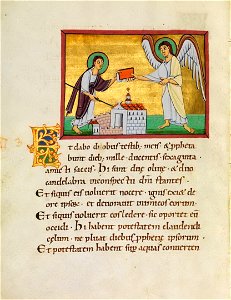 Et dabo duobus testib; meis & ppheta
bunt dieb; mille ducentis sexaginta
amicti saccis. Hi sunt due oliue & duo
candelabra inconspectu dni stantes.
Et siquis uoluerit nocere ignis exi& de
ore ipsor & deuorabit inimicos eorum.
Et siquis uoluerit eos ledere sic oport& eum
occidi. Hi habent potestatem claudendi
celum. ne pluat dieb; pphetie ipsorum
Et potestatem habent sup aquas conuerten